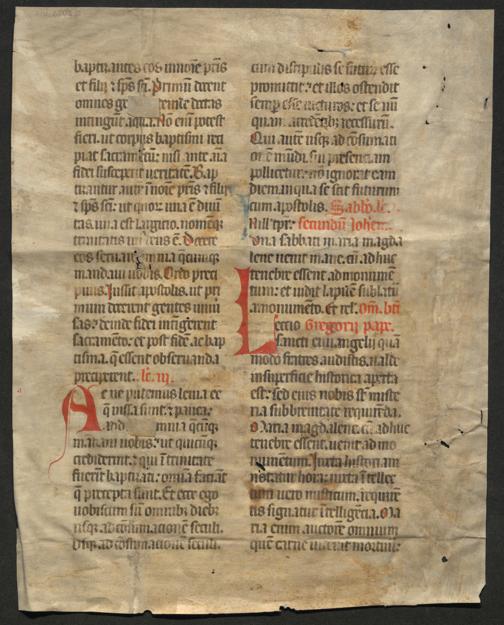 baptizantes eos in noīe pr̄is
et filij ⁊ sp̄s sc̄i. Primū docent
omnes deinde doctas
intingūt aqua. Nō eni potest
fieri. ut corpus baptismi reci
piat sacramētū: nisi ante aīa
fidei susceperit ueritatē. Bap
tizantur aute in noīe pr̄is ⁊ filij
⁊ sp̄s sc̄i: ut quor una ē diuī
tas. una sit largitio. nomenq;
trinitatis un deus ē. Docete
eos seruare omnia quecunq;
mandaui uobis. Ordo preci
puus. Iussit apostolis. ut pri
mum docerent gentes uniu
sas: deinde fidei intingerent
sacramento: et post fidē ac bap
tisma. que essent obseruanda
preciperent. lc̄. iij.
Ac ne putemus leuia ee
q̄ iussa sunt: ⁊ pauca:
addidit omnia quecūq;
mandaui uobis: ut quicūq;
crediderint. ⁊ qui ī trinitate
fuerit baptizati: omīa faciāt
que precepta sunt. Et ecce ego
uobiscum sū omnibꝫ diebꝫ
usq; ad cōsumationē seculi.
Usq; ad cōsumatione seculi.
cum discipulis se futurū esse
promittit: et illos ostendit
semp esse uicturos: et se nū
quam a credētibꝫ recessurū.
Qui aute usq; ad cōsumati
onē mūdi. sui presentiam
pollicetur: nō ignorat eam
diem. in qua se scit futurum
cum apostolis. Sabbō. lc̄.
In ill' tpr̄: secundū Johēm.
Una sabbati maria magda
lene uenit mane. cū adhuc
tenebre essent ad monumē
tum: et uidit lapidē sublatū
a monumēto. Et rel. Om̄. btī
Lectio Gregorij pape.
sancti euuangelij quā
modo fratres audistis. ualde
in superficie historica aperta
est: sed eius nobis st̄ miste
ria subbreuitate requirēda.
Maria magdalene. cū adhuc
tenebre essent. uenit ad mo
numentum. Iuxta historiam
notatur hora: iuxta ītellec
tum uero misticum. requirē
tis signatur ītelligētia. Ma
ria etenim auctorē omnium
quē carne uiderat mortuū: